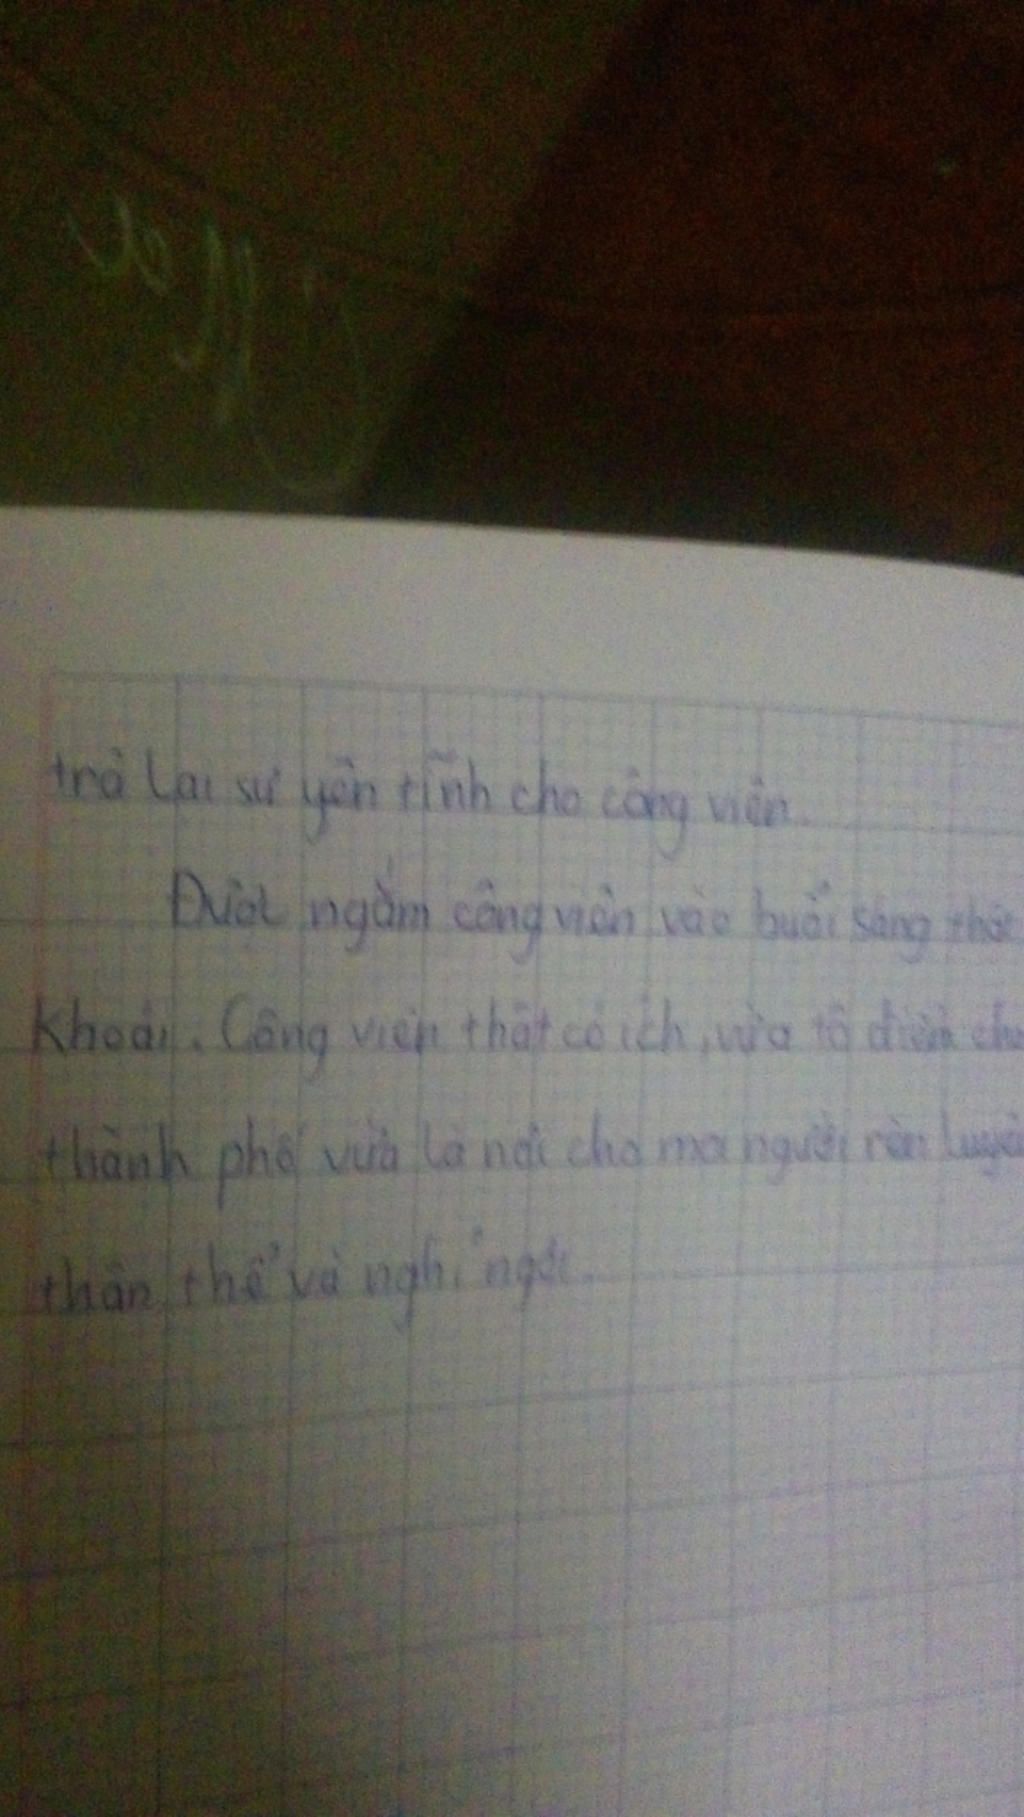 trả lại sự yên tĩnh cho công viên.
Được ngắm công viên vào buổi sáng thật
khoái. Công viên thật có ích, vừa tô điểm cho
thành phố vừa là nơi cho mọi người rèn luyện
thân thể và nghỉ ngơi.